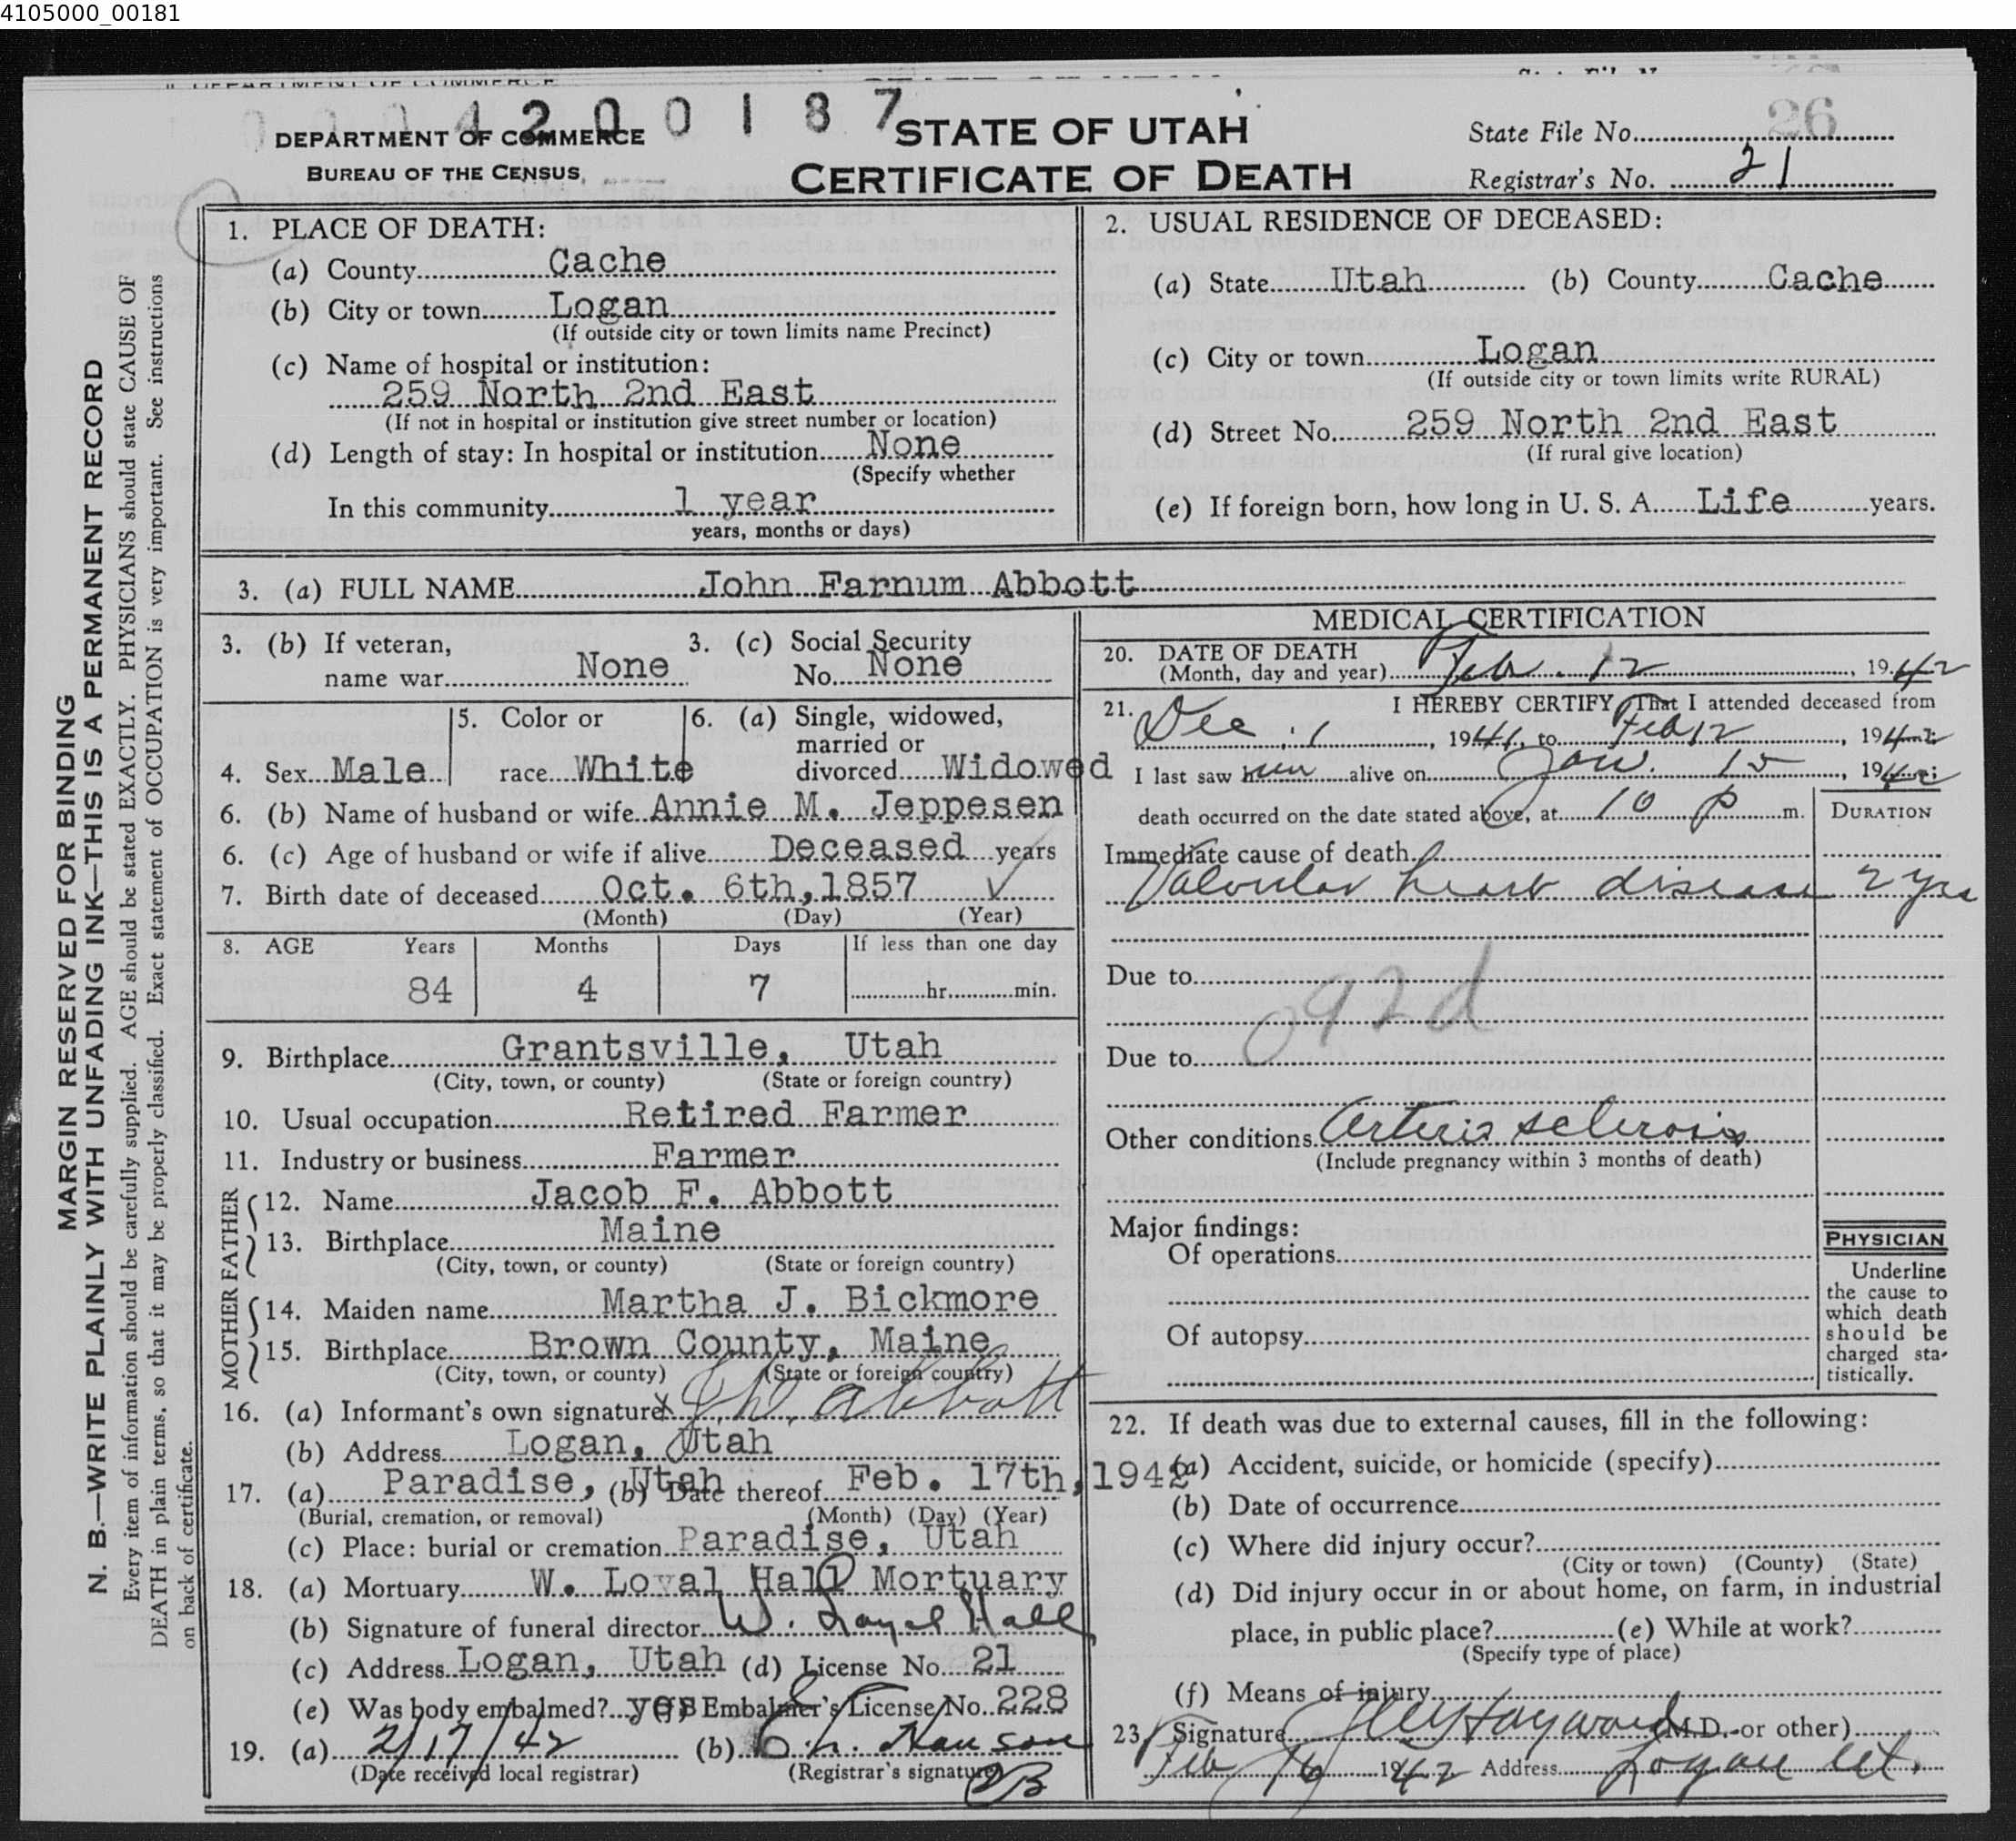 4105000_00181
4200187
DEPARTMENT OF COMMERCE
BUREAU OF THE CENSUS
STATE OF UTAH
CERTIFICATE OF DEATH
State File No. 26
Registrar's No. 21
MARGIN RESERVED FOR BINDING
N. B.—WRITE PLAINLY WITH UNFADING INK—THIS IS A PERMANENT RECORD
Every item of information should be carefully supplied. AGE should be stated EXACTLY. PHYSICIANS should state CAUSE OF
DEATH in plain terms, so that it may be properly classified. Exact statement of OCCUPATION is very important. See instructions
on back of certificate.
1. PLACE OF DEATH:
(a) County Cache
(b) City or town Logan
(If outside city or town limits name Precinct)
(c) Name of hospital or institution:
259 North 2nd East
(If not in hospital or institution give street number or location)
(d) Length of stay: In hospital or institution None
(Specify whether
In this community 1 year
years, months or days)
2. USUAL RESIDENCE OF DECEASED:
(a) State Utah (b) County Cache
(c) City or town Logan
(If outside city or town limits write RURAL)
(d) Street No. 259 North 2nd East
(If rural give location)
(e) If foreign born, how long in U. S. A. Life years.
3. (a) FULL NAME John Farnum Abbott
3. (b) If veteran,
name war None
3. (c) Social Security
No. None
4. Sex Male
5. Color or
race White
6. (a) Single, widowed,
married or
divorced Widowed
6. (b) Name of husband or wife Annie M. Jeppesen
6. (c) Age of husband or wife if alive Deceased years
7. Birth date of deceased Oct. 6th, 1857 ✓
(Month) (Day) (Year)
8. AGE Years Months Days If less than one day
84 4 7 hr. min.
9. Birthplace Grantsville, Utah
(City, town, or county) (State or foreign country)
10. Usual occupation Retired Farmer
11. Industry or business Farmer
FATHER
12. Name Jacob F. Abbott
13. Birthplace Maine
(City, town, or county) (State or foreign country)
MOTHER
14. Maiden name Martha J. Bickmore
15. Birthplace Brown County, Maine
(City, town, or county) (State or foreign country)
16. (a) Informant's own signature x Abbott
(b) Address Logan, Utah
17. (a) Paradise, Utah (b) Date thereof Feb. 17th, 1942
(Burial, cremation, or removal) (Month) (Day) (Year)
(c) Place: burial or cremation Paradise, Utah
18. (a) Mortuary W. Loyal Hall Mortuary
(b) Signature of funeral director W. Loyal Hall
(c) Address Logan, Utah (d) License No. 21
(e) Was body embalmed? yes Embalmer's License No. 228
19. (a) 2/17/42 (b) Hansen
(Date received local registrar) (Registrar's signature)
MEDICAL CERTIFICATION
20. DATE OF DEATH
(Month, day and year) Feb. 12, 1942
21. I HEREBY CERTIFY That I attended deceased from
Dec. 1, 1941, to Feb 12, 1942
I last saw him alive on Jan. 15, 1942
death occurred on the date stated above, at 10 p m.
DURATION
Immediate cause of death
Valvular heart disease 2 yrs
Due to
92d
Due to
Other conditions Arterio sclerosis
(Include pregnancy within 3 months of death)
Major findings:
Of operations
Of autopsy
PHYSICIAN
Underline
the cause to
which death
should be
charged sta-
tistically.
22. If death was due to external causes, fill in the following:
(a) Accident, suicide, or homicide (specify)
(b) Date of occurrence
(c) Where did injury occur?
(City or town) (County) (State)
(d) Did injury occur in or about home, on farm, in industrial
place, in public place? (e) While at work?
(Specify type of place)
(f) Means of injury
23. Signature Hayward (M.D. or other)
Feb 16 1942 Address Logan Ut.